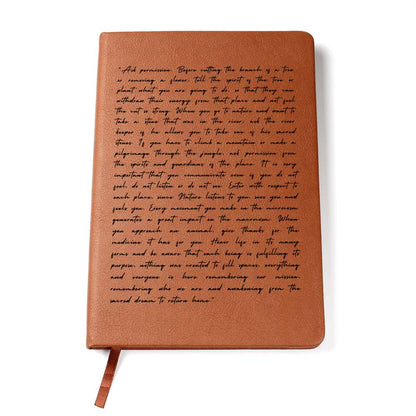 "Ask permission. Before cutting the branch of a tree
or removing a flower, tell the spirit of the tree or
plant what you are going to do, so that they can
withdraw their energy from that place and not feel
the cut so strong. When you go to nature and want to
take a stone that was in the river, ask the river
keeper if he allows you to take one of his sacred
stones. If you have to climb a mountain or make a
pilgrimage through the jungle, ask permission from
the spirits and guardians of the place. It is very
important that you communicate even if you do not
feel, do not listen or do not see. Enter with respect to
each place, since Nature listens to you, sees you and
feels you. Every movement you make in the microcosm
generates a great impact on the macrocosm. When
you approach an animal, give thanks for the
medicine it has for you. Honor life in its many
forms and be aware that each being is fulfilling its
purpose, nothing was created to fill spaces, everything
and everyone is here remembering our mission,
remembering who we are and awakening from the
sacred dream to return home."